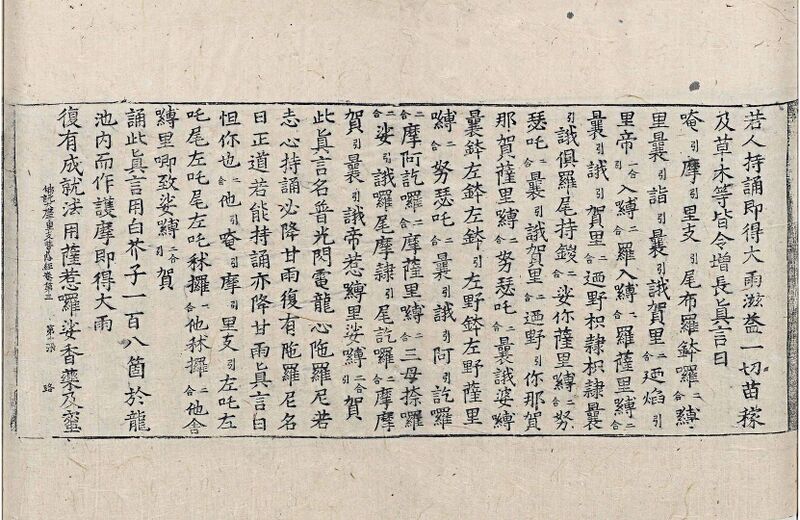 若人持誦即得大雨滋益一切苗稼
及草木等皆令增長眞言曰
唵引摩引里支引尾布羅鉢囉二合縛
里曩引詣引曩引誐賀里二合廼焰引
里帝一合入縛二合羅入縛二合羅薩里縛二合
曩引誐引賀里二合廼野枳隷枳隷曩
引誐俱羅尾持鑁二合娑你薩里縛二合努
瑟吒二合曩引誐賀里二合廼野引你那賀
那賀薩里縛二合努瑟吒二合曩引誐婆縛
曩鉢左鉢左鉢引左野鉢左野薩里
縛二合努瑟吒二合曩引誐引阿引訖囉
二合摩阿訖囉二合摩薩里縛二合三母捺囉
二合娑引誐囉尾摩隷引尾訖囉二合摩摩
賀引曩引誐帝惹縛里娑縛二合引賀
此眞言名普光閃電龍心陁羅尼若
志心持誦必降甘雨復有陁羅尼名
日正道若能持誦亦降甘雨眞言曰
怛你也二合他引唵引摩引里支引左吒左
吒尾左吒尾左吒秫攞二合他秫攞二合他舍
縛里唧致娑縛二合引賀
誦此眞言用白芥子一百八箇於龍
池內而作護摩即得大雨
佛說大摩里支菩薩經卷第三 第十張 路
復有成就法用薩惹囉娑香藥及蜜